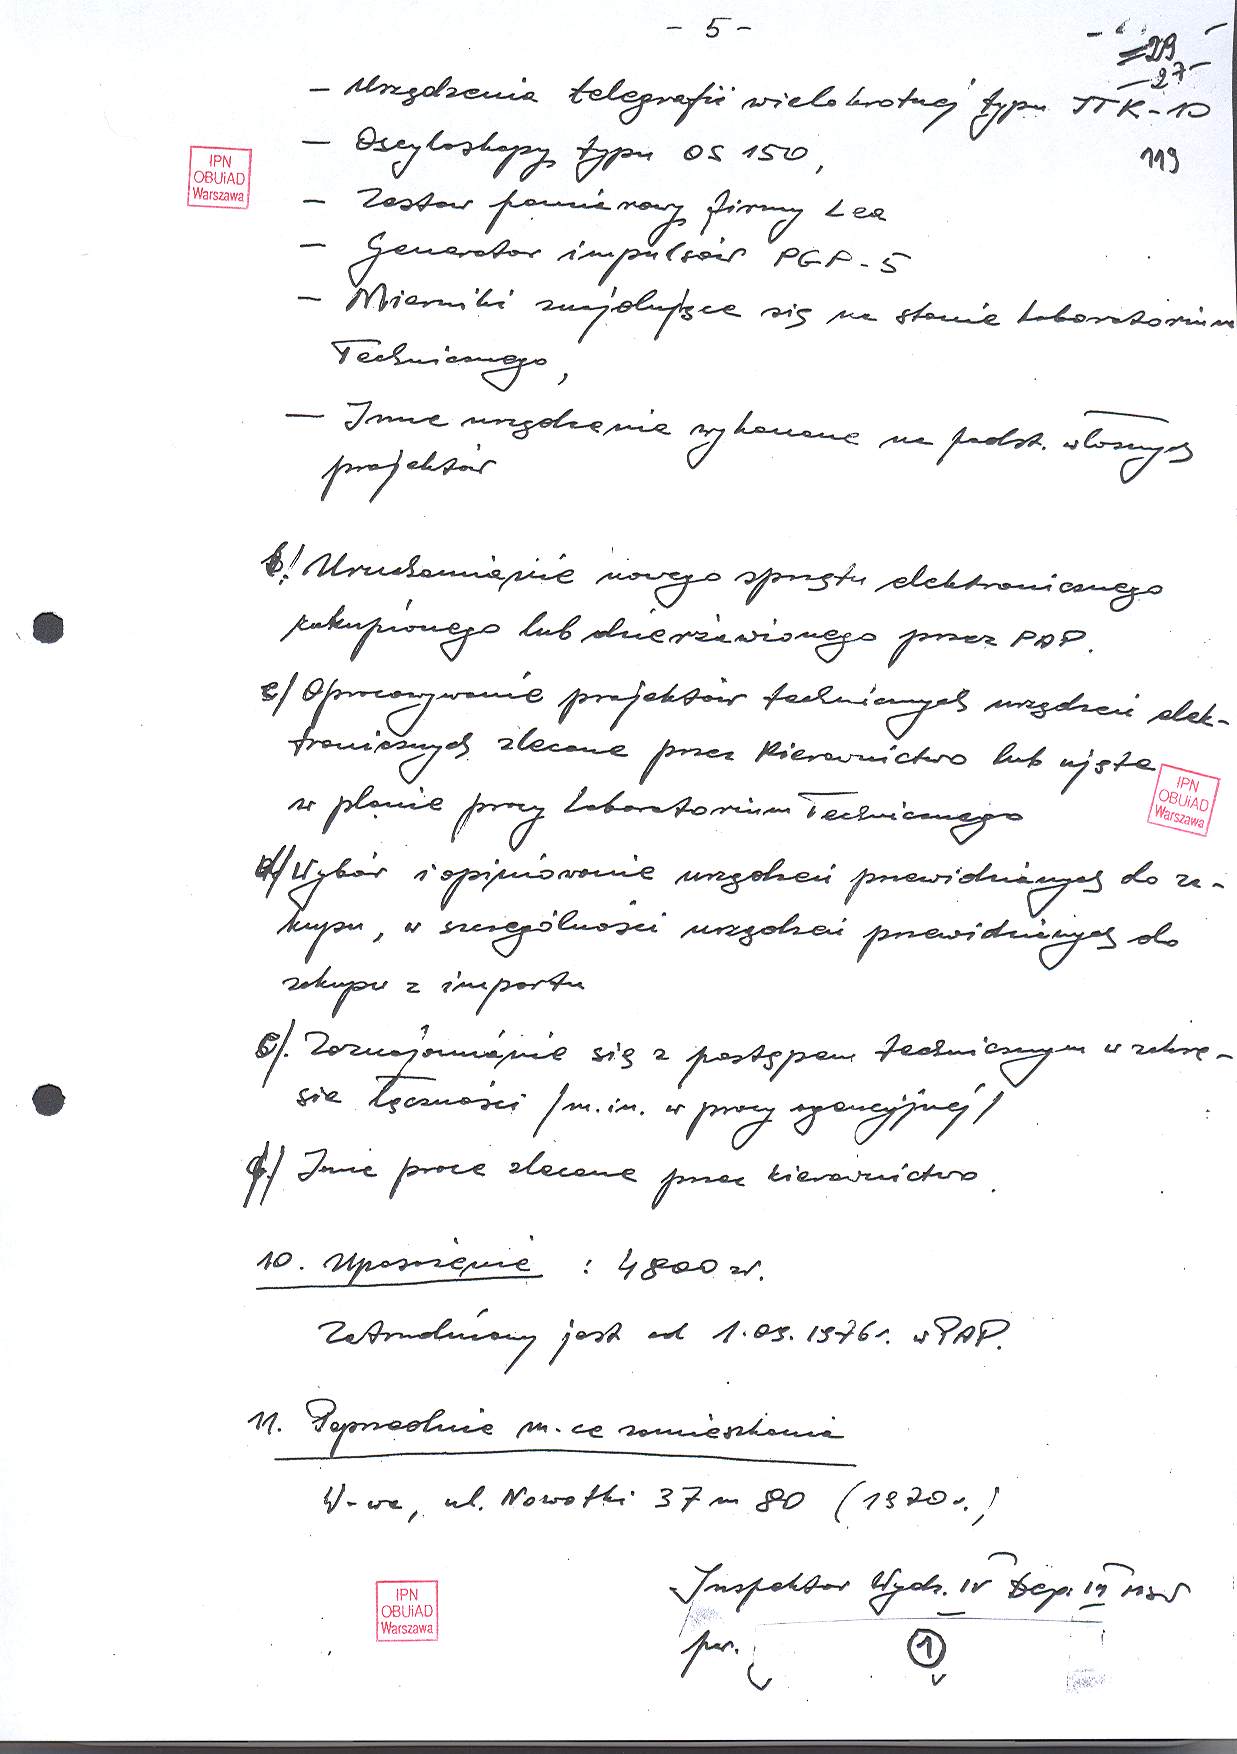 - 5 -
29
27
- Urządzenia telegrafii wielokrotnej typu TTK-10
119
- Oscyloskopy typu OS 150,
IPN
OBUiAD
Warszawa
- Zestaw pomiarowy firmy Lea
- Generator impulsów PGP-5
- Mierniki znajdujące się na stanie Laboratorium
Technicznego,
- Inne urządzenia wykonane na podst. własnych
projektów
b/ Uruchamianie nowego sprzętu elektronicznego
zakupionego lub dzierżawionego przez PAP.
c/ Opracowywanie projektów technicznych urządzeń elek-
tronicznych zlecone przez Kierownictwo lub ujęte
w planie pracy Laboratorium Technicznego
IPN
OBUiAD
Warszawa
d/ Wybór i opiniowanie urządzeń przewidzianych do za-
kupu, w szczególności urządzeń przewidzianych do
zakupu z importu
e/. Zaznajamianie się z postępem technicznym w zakre-
sie łączności /m.in. w pracy agencyjnej/
f/ Inne prace zlecone przez kierownictwo.
10. Uposażenie : 4800 zł.
Zatrudniony jest od 1.09.1976r. w PAP.
11. Poprzednie m-ce zamieszkania
W-wa, ul. Nowotki 37 m 80 (1970r.)
Inspektor Wydz. IV Dep. III MSW
IPN
OBUiAD
Warszawa
por.
1